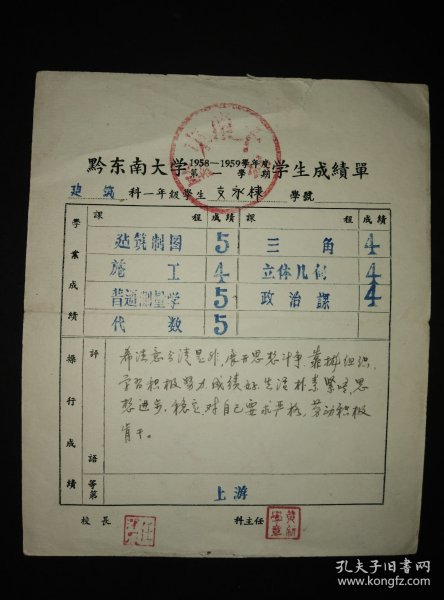 黔东南大学1958—1959學年度第一學期学生成績單
建筑科一年級學生 文永棟 學號
學業成績
課程 成績 課程 成績
建筑制图 5 三角 4
施工 4 立体几何 4
普通測量学 5 政治課 4
代数 5
操行成績
評語
希注意分清是非,展开思想斗争.靠拢组织.
学习积极努力,成绩好.生活朴素紧张,思
想进步.稳定.对自己要求严格,劳动积极
肯干。
等第
上游
校長
科主任
孔夫子旧書网
www.kongfz.com